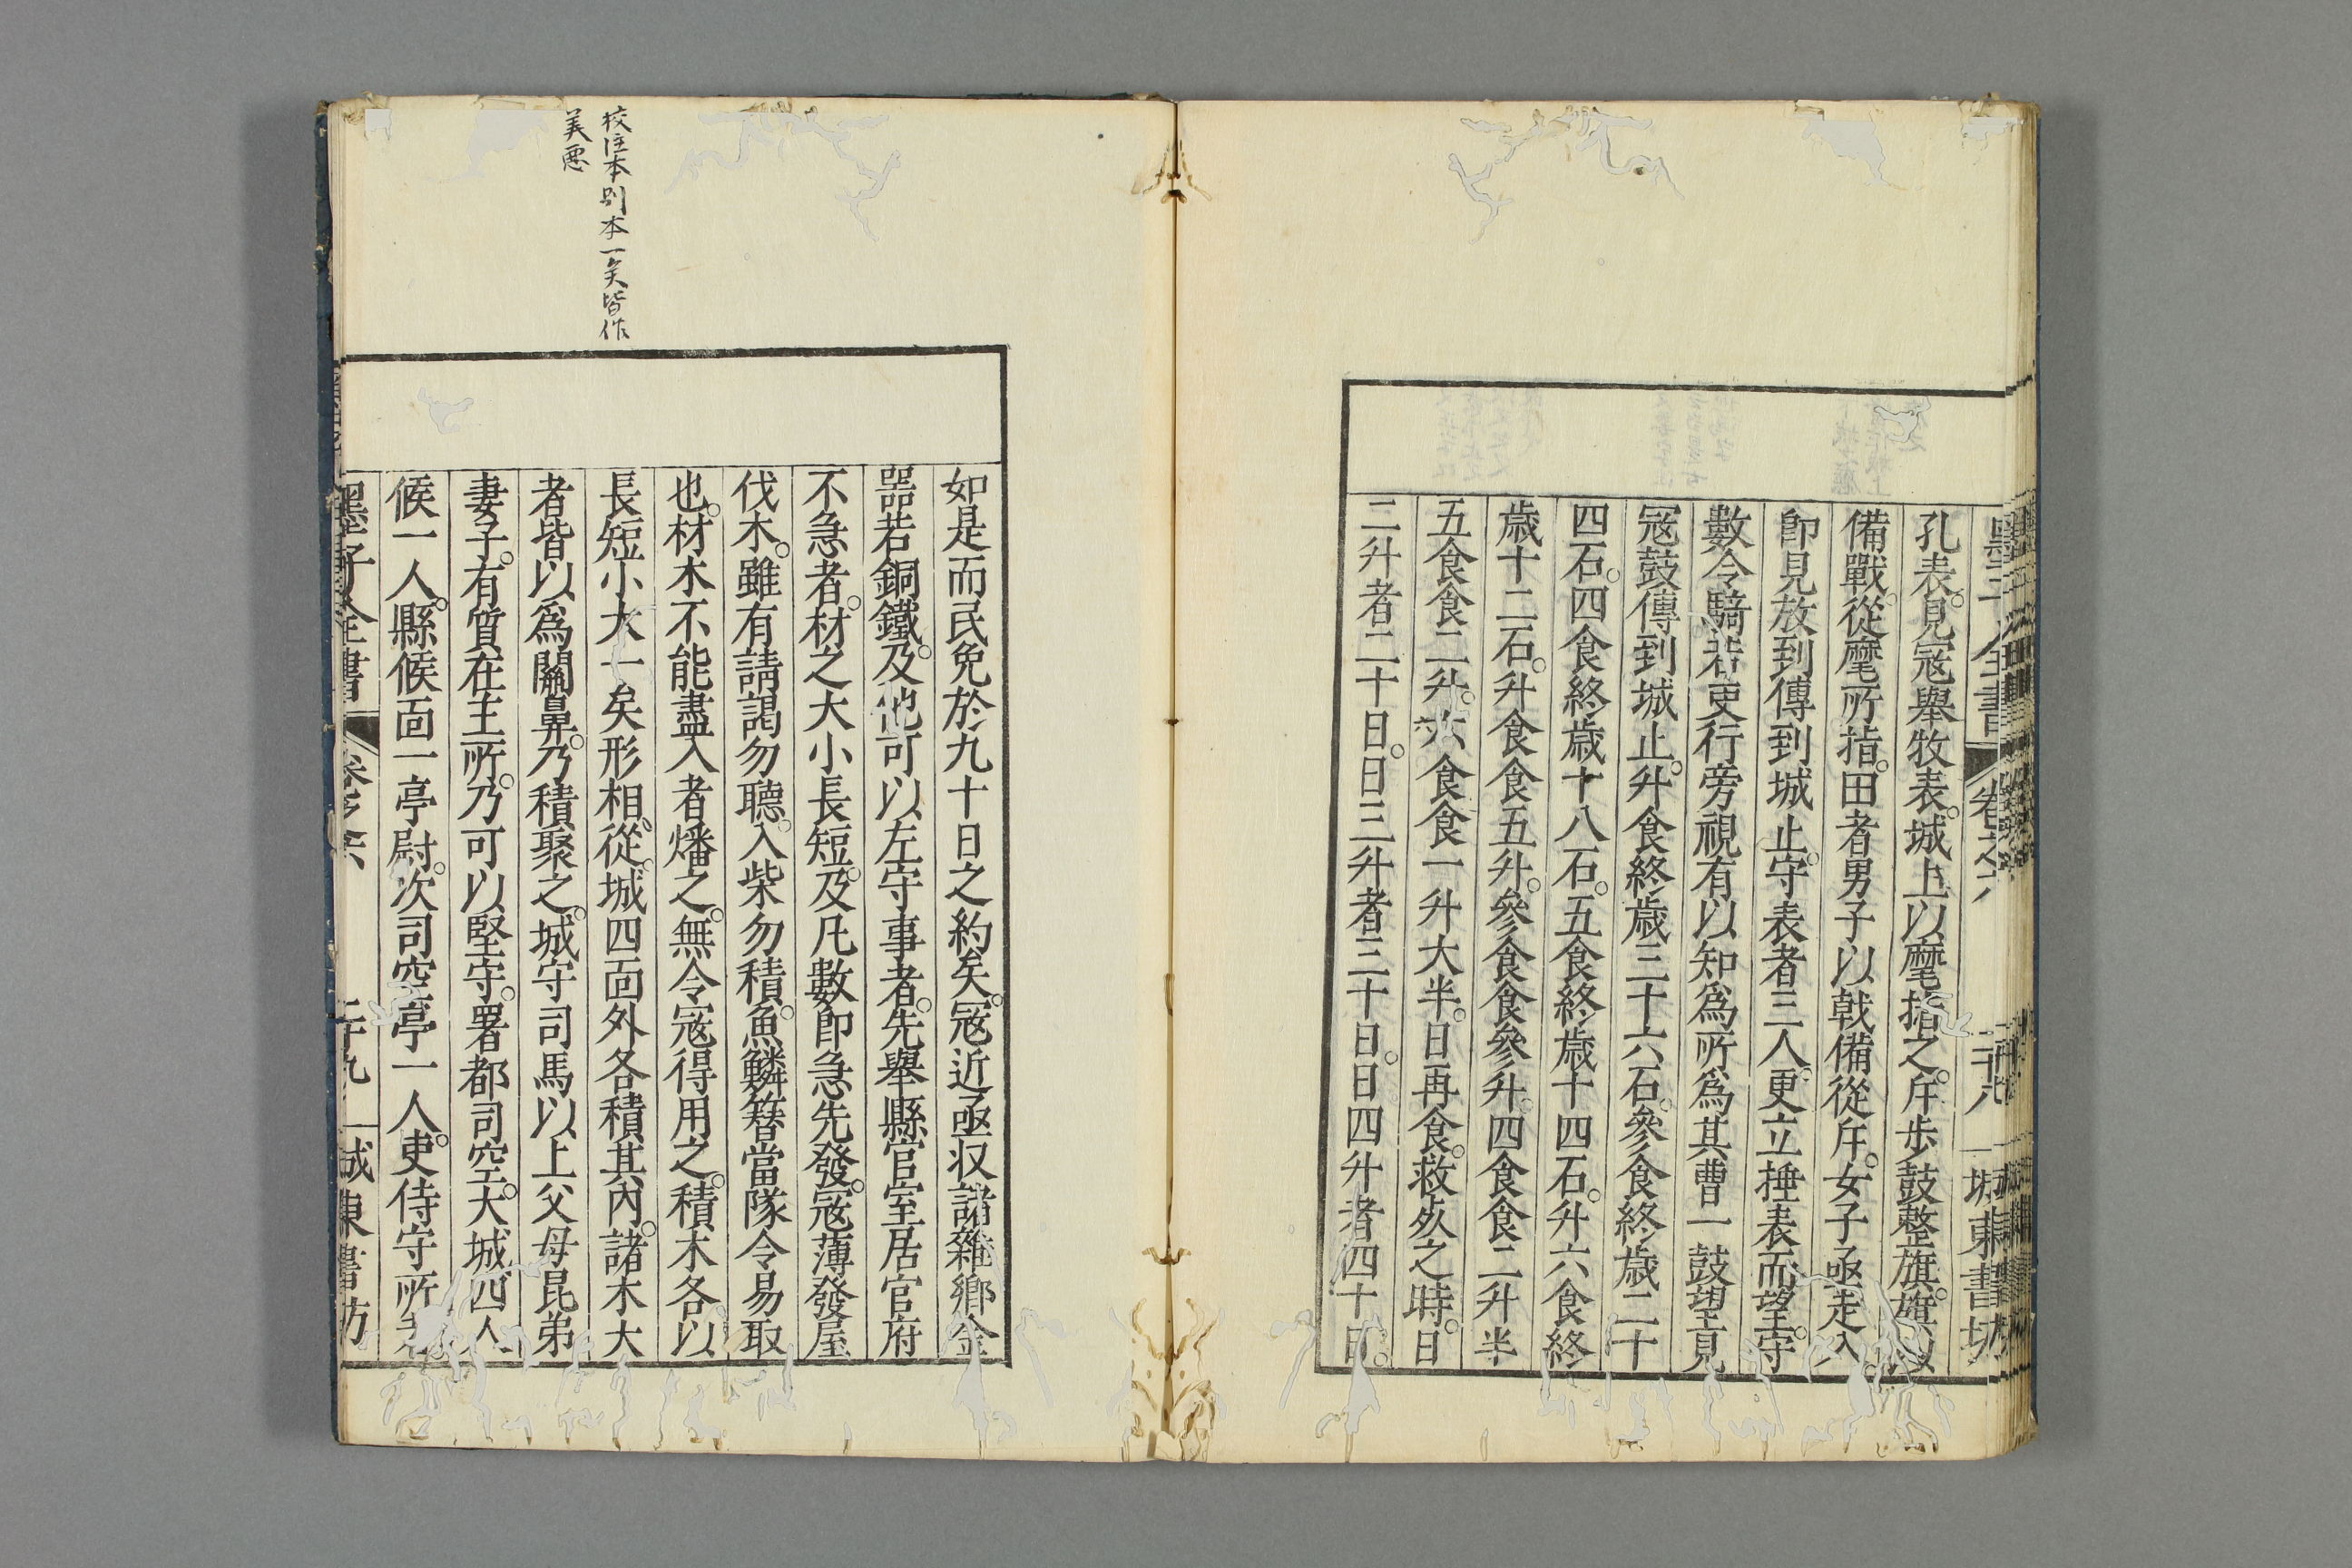 墨子全書 卷之六 二十八 城東書坊
孔表。見寇舉牧表。城上以麾指之。斥步鼓整旗。旗以
備戰。從麾所指。田者男子以戟備從斥。女子亟走入。
卽見放到傳到城止。守表者三人。更立捶表而望。守
數令騎若吏行旁視有以知爲所爲其曹一鼓望見
寇鼓傳到城止。升食終歲三十六石。參食終歲二十
四石。四食終歲十八石。五食終歲十四石。升六食終
歲十二石。升食食五升。參食食參升。四食食二升半
五食食二升。六食食一升大半。日再食。救死之時。日
二升者二十日。日三升者三十日。日四升者四十日。
校注本別本一矣皆作
美惡
如是而民免於九十日之約矣。寇近亟收諸雜鄉金
器若銅鐵。及他可以左守事者。先舉縣官室居官府
不急者。材之大小長短。及凡數卽急先發。寇薄發屋
伐木。雖有請謁勿聽。入柴勿積。魚鱗簪當隊令易取
也。材木不能盡入者燔之。無令寇得用之。積木各以
長短小大一矣形相從。城四面外各積其內。諸木大
者皆以爲關鼻。乃積聚之。城守司馬以上父母昆弟
妻子。有質在主所。乃可以堅守。署都司空。大城四人
候一人。縣候面一亭尉。次司空亭一人。吏侍守所者
墨子全書 卷之六 二十九 城東書坊